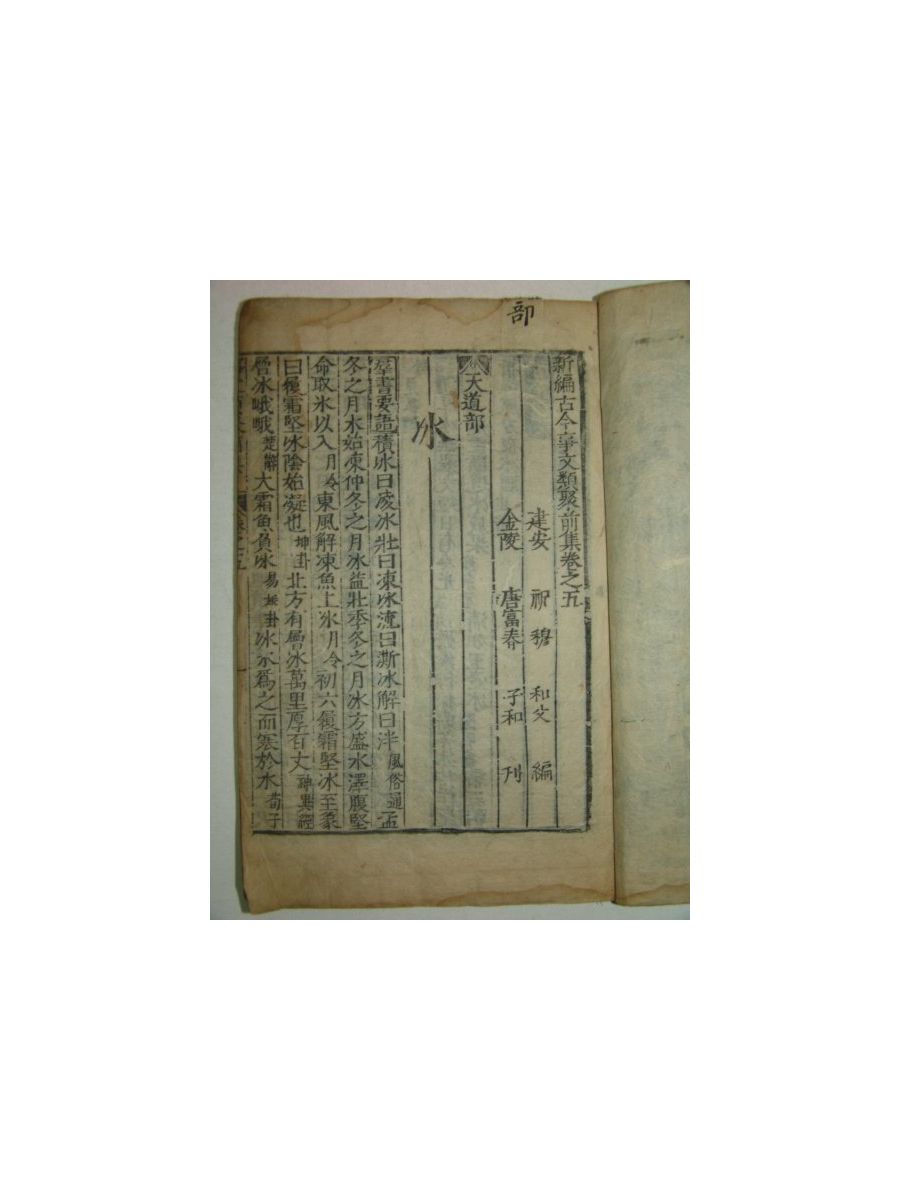 部
新編古今事文類聚前集卷之五
建安 祝穆 和父 編
金陵 唐富春 子和 刊
天道部
氷
羣書要語積氷曰凌氷壯曰凍氷流曰澌氷解曰泮風俗通孟
冬之月水始凍仲冬之月氷益壯季冬之月氷方盛水澤腹堅
命取氷以入月令東風解凍魚上氷月令初六履霜堅氷至象
曰履霜堅氷陰始凝也坤卦北方有層氷萬里厚百丈神異經
層氷峨峨楚辭大霜魚負氷易卦氷水爲之而寒於水荀子
卷之五